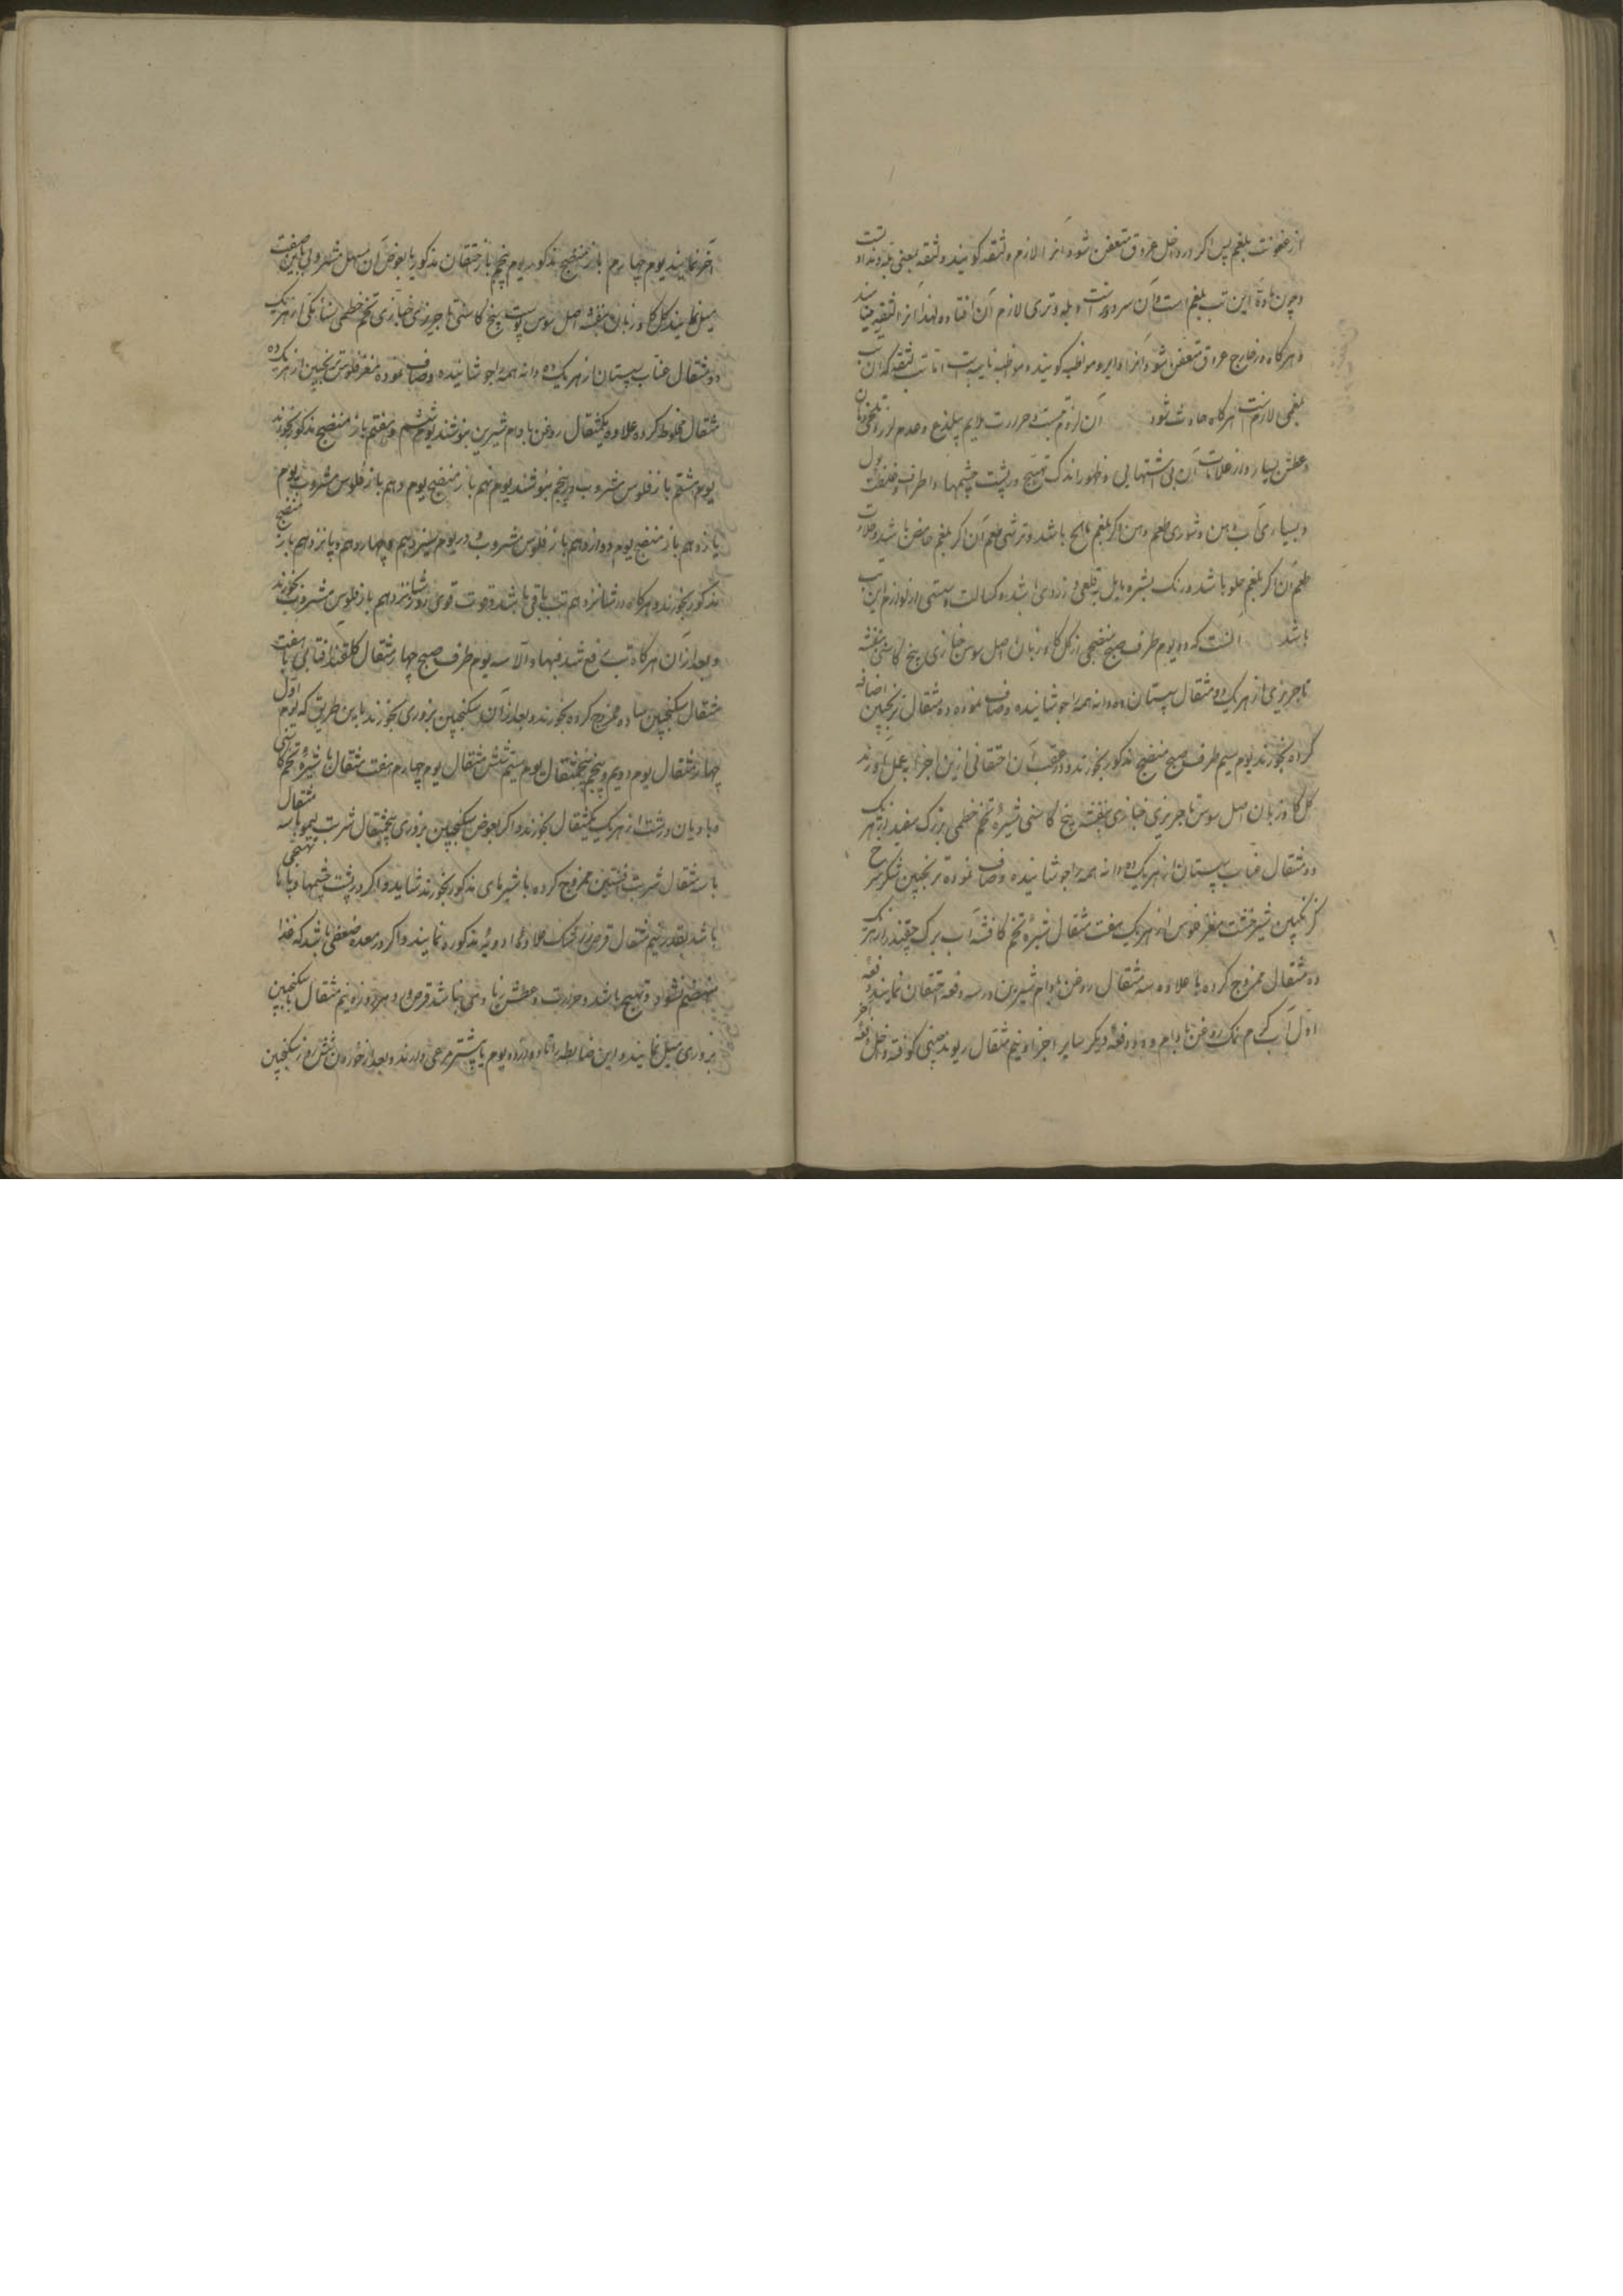 از عفونت بلغم پس اگر در داخل عروق متعفن شود آنرا لازم و لثقه گویند و لثقه بمعنی بله و نداوتست
و چون مادهٔ این تب بلغم است و آن سرد و تر است و بله و تری لازم آن افتاده و لهذا آنرا لثقه مینامند
و هرگاه در خارج عروق متعفن شود آنرا دایره و مواظبه گویند و مواظبه نایبه است اما تب لثقه که آن تب
بلغمی لازم است هرگاه حادث شود آن لزوم تبست و حرارت دایم بیلذع و عدم لرز و تلخی دهان
و عطش بسیار و از علامات آن بی اشتهایی و ظهور اندک تهبج در پشت چشمها و اطراف و غلظت بول
و بسیاری آب دهن و شوری طعم دهن اگر بلغم مالح باشد و ترشی طعم آن اگر بلغم حامض باشد و حلاوت
طعم آن اگر بلغم حلو باشد و رنگ بشره مایل به قلعی و زردی باشد و کسالت و سستی از لوازم این تب
باشد آنست که دو یوم طرف صبح منضجی از گل گاو زبان اصل سوس خبازی بیخ کاسنی بنفشه
تاجریزی از هر یک دو مثقال سپستان ده دانه همه را جوشانیده و صاف نموده ده مثقال ترنجبین اضافه
کرده بخورند یوم سیم طرف صبح منضج مذکور بخورند و در عقب آن احتقانی ازین اجزا بعمل آورند
گل گاو زبان اصل سوس تاجریزی خبازی بنفشه بیخ کاسنی شیرهٔ تخم خطمی بزرگ سفید از هر یک
دو مثقال عناب سپستان از هر یک ده دانه همه را جوشانیده و صاف نموده ترنجبین شکر سرخ
گزنگبین شیرخشت مغز فلوس از هر یک هفت مثقال شیرهٔ تخم کافشه آب برگ چغندر از هر یک
ده مثقال ممزوج کرده با علاوه سه مثقال روغن بادام شیرین در سه دفعه احتقان نمایند دفعه
اول آب گرم نمک روغن بادام و دو دفعهٔ دیگر سایر اجزا و نیم مثقال ریوند چینی کوفته داخل دفعهٔ آخر
آخر نمایند یوم چهارم باز منضج مذکور یوم پنجم باز احتقان مذکور یا بعوض آن مسهل مشروبی باین صفت
میل نمایند گل گاو زبان بنفشه اصل سوس پوست بیخ کاسنی تاجریزی خبازی تخم خطمی سنا مکی از هر یک
دو مثقال عناب سپستان از هر یک ده دانه همه را جوشانیده و صاف نموده مغز فلوس ترنجبین از هر یک ده
مثقال مخلوط کرده علاوه یکمثقال روغن بادام شیرین بنوشند یوم ششم و هفتم باز منضج مذکور بخورند
یوم هشتم باز فلوس مشروب و بنوشند یوم نهم باز منضج یوم دهم باز فلوس مشروب یوم
یازدهم باز منضج یوم دوازدهم باز فلوس مشروب و در یوم سیزدهم و چهاردهم و پانزدهم باز منضج
مذکور بخورند و هرگاه در شانزدهم تب باقی باشد و قوت قوی روز شانزدهم باز فلوس مشروب بخورند
و بعد از آن هرگاه تب رفع شد فبها و الا سه یوم طرف صبح چهار مثقال گلقند آفتابی با هفت
مثقال سکنجبین ساده ممزوج کرده بخورند و بعد از آن سکنجبین بزوری بخورند باین طریق که یوم اول
چهار مثقال یوم دویم و پنجم پنجمثقال یوم سیم شش مثقال یوم چهارم هفت مثقال با شیرهٔ تخم کاسنی
و بادیان و رشتی از هر یک یکمثقال بخورند و اگر بعوض سکنجبین بزوری پنجمثقال شربت لیمو با سه مثقال
با سه مثقال شربت افسنتین ممزوج کرده با شیرهای مذکور بخورند شاید و اگر در پشت چشمها و پاها تهبجی
باشد بقدر نیم مثقال قرص زرشک علاوهٔ ادویهٔ مذکوره نمایند و اگر در معده ضعفی باشد که غذا
منهضم نشود و تهبج باشد و حرارت و عطش زیادی نباشد قرص ورد هر روزه نیم مثقال با سکنجبین
بزوری میل نمایند و این ضابطه را تا دوازده یوم یا بیشتر مرعی دارند و بعد از خوردن شش روز سکنجبین